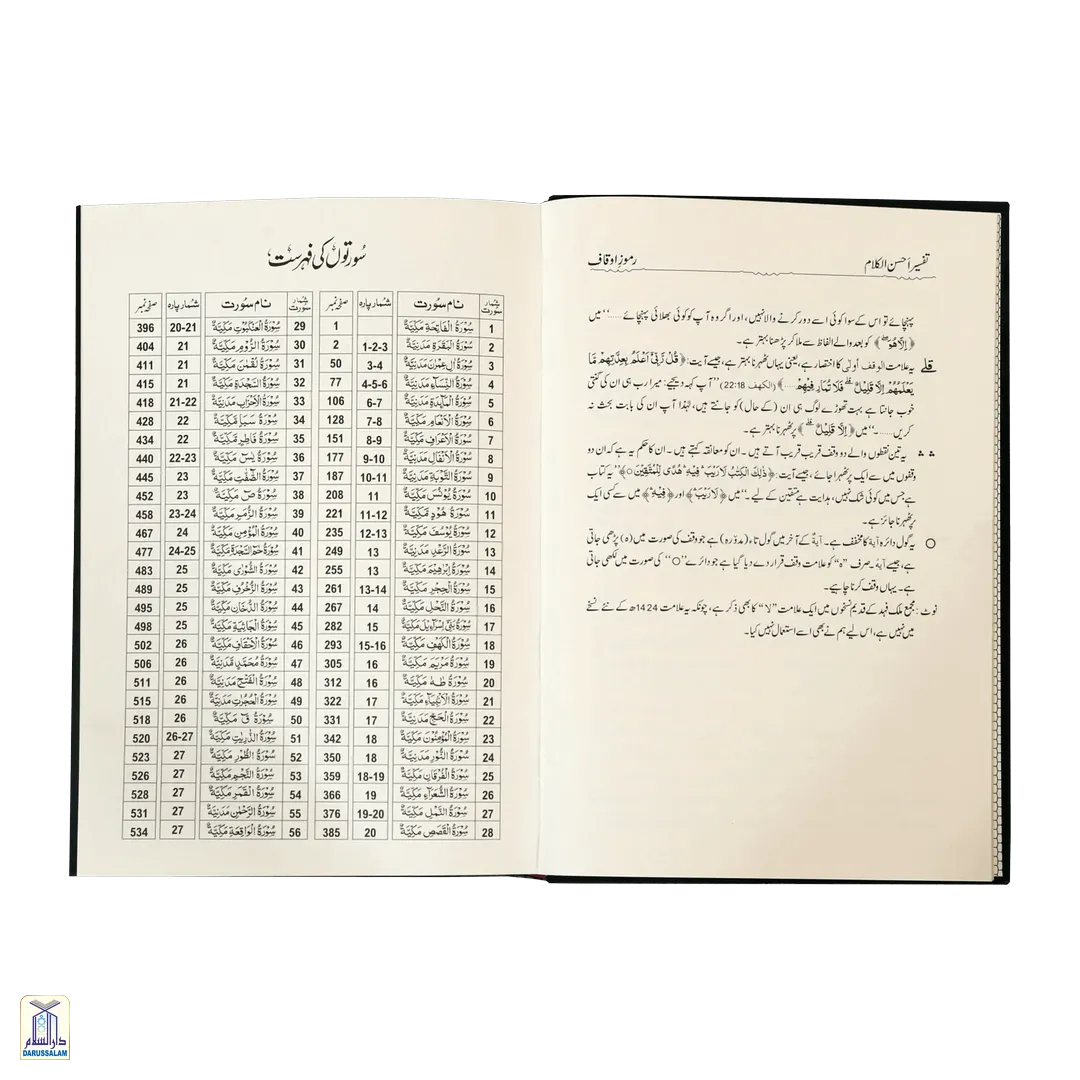 تفسیر احسن الکلام
رموز اوقاف
پہنچائے تو اس کے سوا کوئی اسے دور کرنے والا نہیں، اور اگر وہ آپ کو کوئی بھلائی پہنچائے ......‘‘ میں
﴿اِلَّا هُوَ ۚ﴾ کو بعد والے الفاظ سے ملا کر پڑھنا بہتر ہے۔
قلے یہ علامت الوقف أولى کا اختصار ہے، یعنی یہاں ٹھہرنا بہتر ہے، جیسے آیت: ﴿قُلْ رَّبِّیْۤ اَعْلَمُ بِعِدَّتِهِمْ مَّا
یَعْلَمُهُمْ اِلَّا قَلِیْلٌ ۗ فَلَا تُمَارِ فِیْهِمْ ....﴾ (الکہف 22:18) ’’آپ کہہ دیجیے: میرا رب ہی ان کی گنتی
خوب جانتا ہے بہت تھوڑے لوگ ہی ان (کے حال) کو جانتے ہیں، لہٰذا آپ ان کی بابت بحث نہ
کریں ......‘‘ میں ﴿اِلَّا قَلِیْلٌ ۗ﴾ پر ٹھہرنا بہتر ہے۔
ۛ ۛ یہ تین نقطوں والے دو وقف قریب قریب آتے ہیں۔ ان کو معانقہ کہتے ہیں۔ ان کا حکم یہ ہے کہ ان دو
وقفوں میں سے ایک پر ٹھہرا جائے، جیسے آیت: ﴿ذٰلِكَ الْكِتٰبُ لَا رَیْبَ ۛ فِیْهِ ۛ هُدًی لِّلْمُتَّقِیْنَ ○﴾ ’’یہ کتاب
ہے جس میں کوئی شک نہیں، ہدایت ہے متقین کے لیے۔‘‘ میں ﴿لَا رَیْبَ ۛ﴾ اور ﴿فِیْهِ ۛ﴾ میں سے کسی ایک
پر ٹھہرنا جائز ہے۔
○ یہ گول دائرہ آیة کا مخفف ہے۔ آیةٌ کے آخر میں گول تاء (مدوّرہ) ہے جو وقف کی صورت میں (ہ) پڑھی جاتی
ہے، جیسے آیہ۔ صرف ’’ہ‘‘ کو علامت وقف قرار دے دیا گیا ہے جو دائرے ’’○‘‘ کی صورت میں لکھی جاتی
ہے۔ یہاں وقف کرنا چاہیے۔
نوٹ: مجمع ملک فہد کے قدیم نسخوں میں ایک علامت ’’لا‘‘ کا بھی ذکر ہے، چونکہ یہ علامت 1424ھ کے نئے نسخے
میں نہیں ہے، اس لیے ہم نے بھی اسے استعمال نہیں کیا۔
سُورتوں کی فہرست
شمار سورت نام سورت شمار پارہ صفحہ نمبر شمار سورت نام سورت شمار پارہ صفحہ نمبر
1 سُوْرَةُ الْفَاتِحَةِ مَكِّيَّةٌ 1 29 سُوْرَةُ الْعَنْكَبُوْتِ مَكِّيَّةٌ 20-21 396
2 سُوْرَةُ الْبَقَرَةِ مَدَنِيَّةٌ 1-2-3 2 30 سُوْرَةُ الرُّوْمِ مَكِّيَّةٌ 21 404
3 سُوْرَةُ اٰلِ عِمْرٰنَ مَدَنِيَّةٌ 3-4 50 31 سُوْرَةُ لُقْمٰنَ مَكِّيَّةٌ 21 411
4 سُوْرَةُ النِّسَآءِ مَدَنِيَّةٌ 4-5-6 77 32 سُوْرَةُ السَّجْدَةِ مَكِّيَّةٌ 21 415
5 سُوْرَةُ الْمَآئِدَةِ مَدَنِيَّةٌ 6-7 106 33 سُوْرَةُ الْاَحْزَابِ مَدَنِيَّةٌ 21-22 418
6 سُوْرَةُ الْاَنْعَامِ مَكِّيَّةٌ 7-8 128 34 سُوْرَةُ سَبَاٍ مَكِّيَّةٌ 22 428
7 سُوْرَةُ الْاَعْرَافِ مَكِّيَّةٌ 8-9 151 35 سُوْرَةُ فَاطِرٍ مَكِّيَّةٌ 22 434
8 سُوْرَةُ الْاَنْفَالِ مَدَنِيَّةٌ 9-10 177 36 سُوْرَةُ يٰسٓ مَكِّيَّةٌ 22-23 440
9 سُوْرَةُ التَّوْبَةِ مَدَنِيَّةٌ 10-11 187 37 سُوْرَةُ الصّٰٓفّٰتِ مَكِّيَّةٌ 23 445
10 سُوْرَةُ يُوْنُسَ مَكِّيَّةٌ 11 208 38 سُوْرَةُ صٓ مَكِّيَّةٌ 23 452
11 سُوْرَةُ هُوْدٍ مَكِّيَّةٌ 11-12 221 39 سُوْرَةُ الزُّمَرِ مَكِّيَّةٌ 23-24 458
12 سُوْرَةُ يُوْسُفَ مَكِّيَّةٌ 12-13 235 40 سُوْرَةُ الْمُؤْمِنِ مَكِّيَّةٌ 24 467
13 سُوْرَةُ الرَّعْدِ مَدَنِيَّةٌ 13 249 41 سُوْرَةُ حٰمٓ السَّجْدَةِ مَكِّيَّةٌ 24-25 477
14 سُوْرَةُ اِبْرٰهِيْمَ مَكِّيَّةٌ 13 255 42 سُوْرَةُ الشُّوْرٰى مَكِّيَّةٌ 25 483
15 سُوْرَةُ الْحِجْرِ مَكِّيَّةٌ 13-14 261 43 سُوْرَةُ الزُّخْرُفِ مَكِّيَّةٌ 25 489
16 سُوْرَةُ النَّحْلِ مَكِّيَّةٌ 14 267 44 سُوْرَةُ الدُّخَانِ مَكِّيَّةٌ 25 495
17 سُوْرَةُ بَنِيْٓ اِسْرَآءِيْلَ مَكِّيَّةٌ 15 282 45 سُوْرَةُ الْجَاثِيَةِ مَكِّيَّةٌ 25 498
18 سُوْرَةُ الْكَهْفِ مَكِّيَّةٌ 15-16 293 46 سُوْرَةُ الْاَحْقَافِ مَكِّيَّةٌ 26 502
19 سُوْرَةُ مَرْيَمَ مَكِّيَّةٌ 16 305 47 سُوْرَةُ مُحَمَّدٍ مَّدَنِيَّةٌ 26 506
20 سُوْرَةُ طٰهٰ مَكِّيَّةٌ 16 312 48 سُوْرَةُ الْفَتْحِ مَدَنِيَّةٌ 26 511
21 سُوْرَةُ الْاَنْبِيَآءِ مَكِّيَّةٌ 17 322 49 سُوْرَةُ الْحُجُرٰتِ مَدَنِيَّةٌ 26 515
22 سُوْرَةُ الْحَجِّ مَدَنِيَّةٌ 17 331 50 سُوْرَةُ قٓ مَكِّيَّةٌ 26 518
23 سُوْرَةُ الْمُؤْمِنُوْنَ مَكِّيَّةٌ 18 342 51 سُوْرَةُ الذّٰرِيٰتِ مَكِّيَّةٌ 26-27 520
24 سُوْرَةُ النُّوْرِ مَدَنِيَّةٌ 18 350 52 سُوْرَةُ الطُّوْرِ مَكِّيَّةٌ 27 523
25 سُوْرَةُ الْفُرْقَانِ مَكِّيَّةٌ 18-19 359 53 سُوْرَةُ النَّجْمِ مَكِّيَّةٌ 27 526
26 سُوْرَةُ الشُّعَرَآءِ مَكِّيَّةٌ 19 366 54 سُوْرَةُ الْقَمَرِ مَكِّيَّةٌ 27 528
27 سُوْرَةُ النَّمْلِ مَكِّيَّةٌ 19-20 376 55 سُوْرَةُ الرَّحْمٰنِ مَدَنِيَّةٌ 27 531
28 سُوْرَةُ الْقَصَصِ مَكِّيَّةٌ 20 385 56 سُوْرَةُ الْوَاقِعَةِ مَكِّيَّةٌ 27 534
دارالسلام
DARUSSALAM